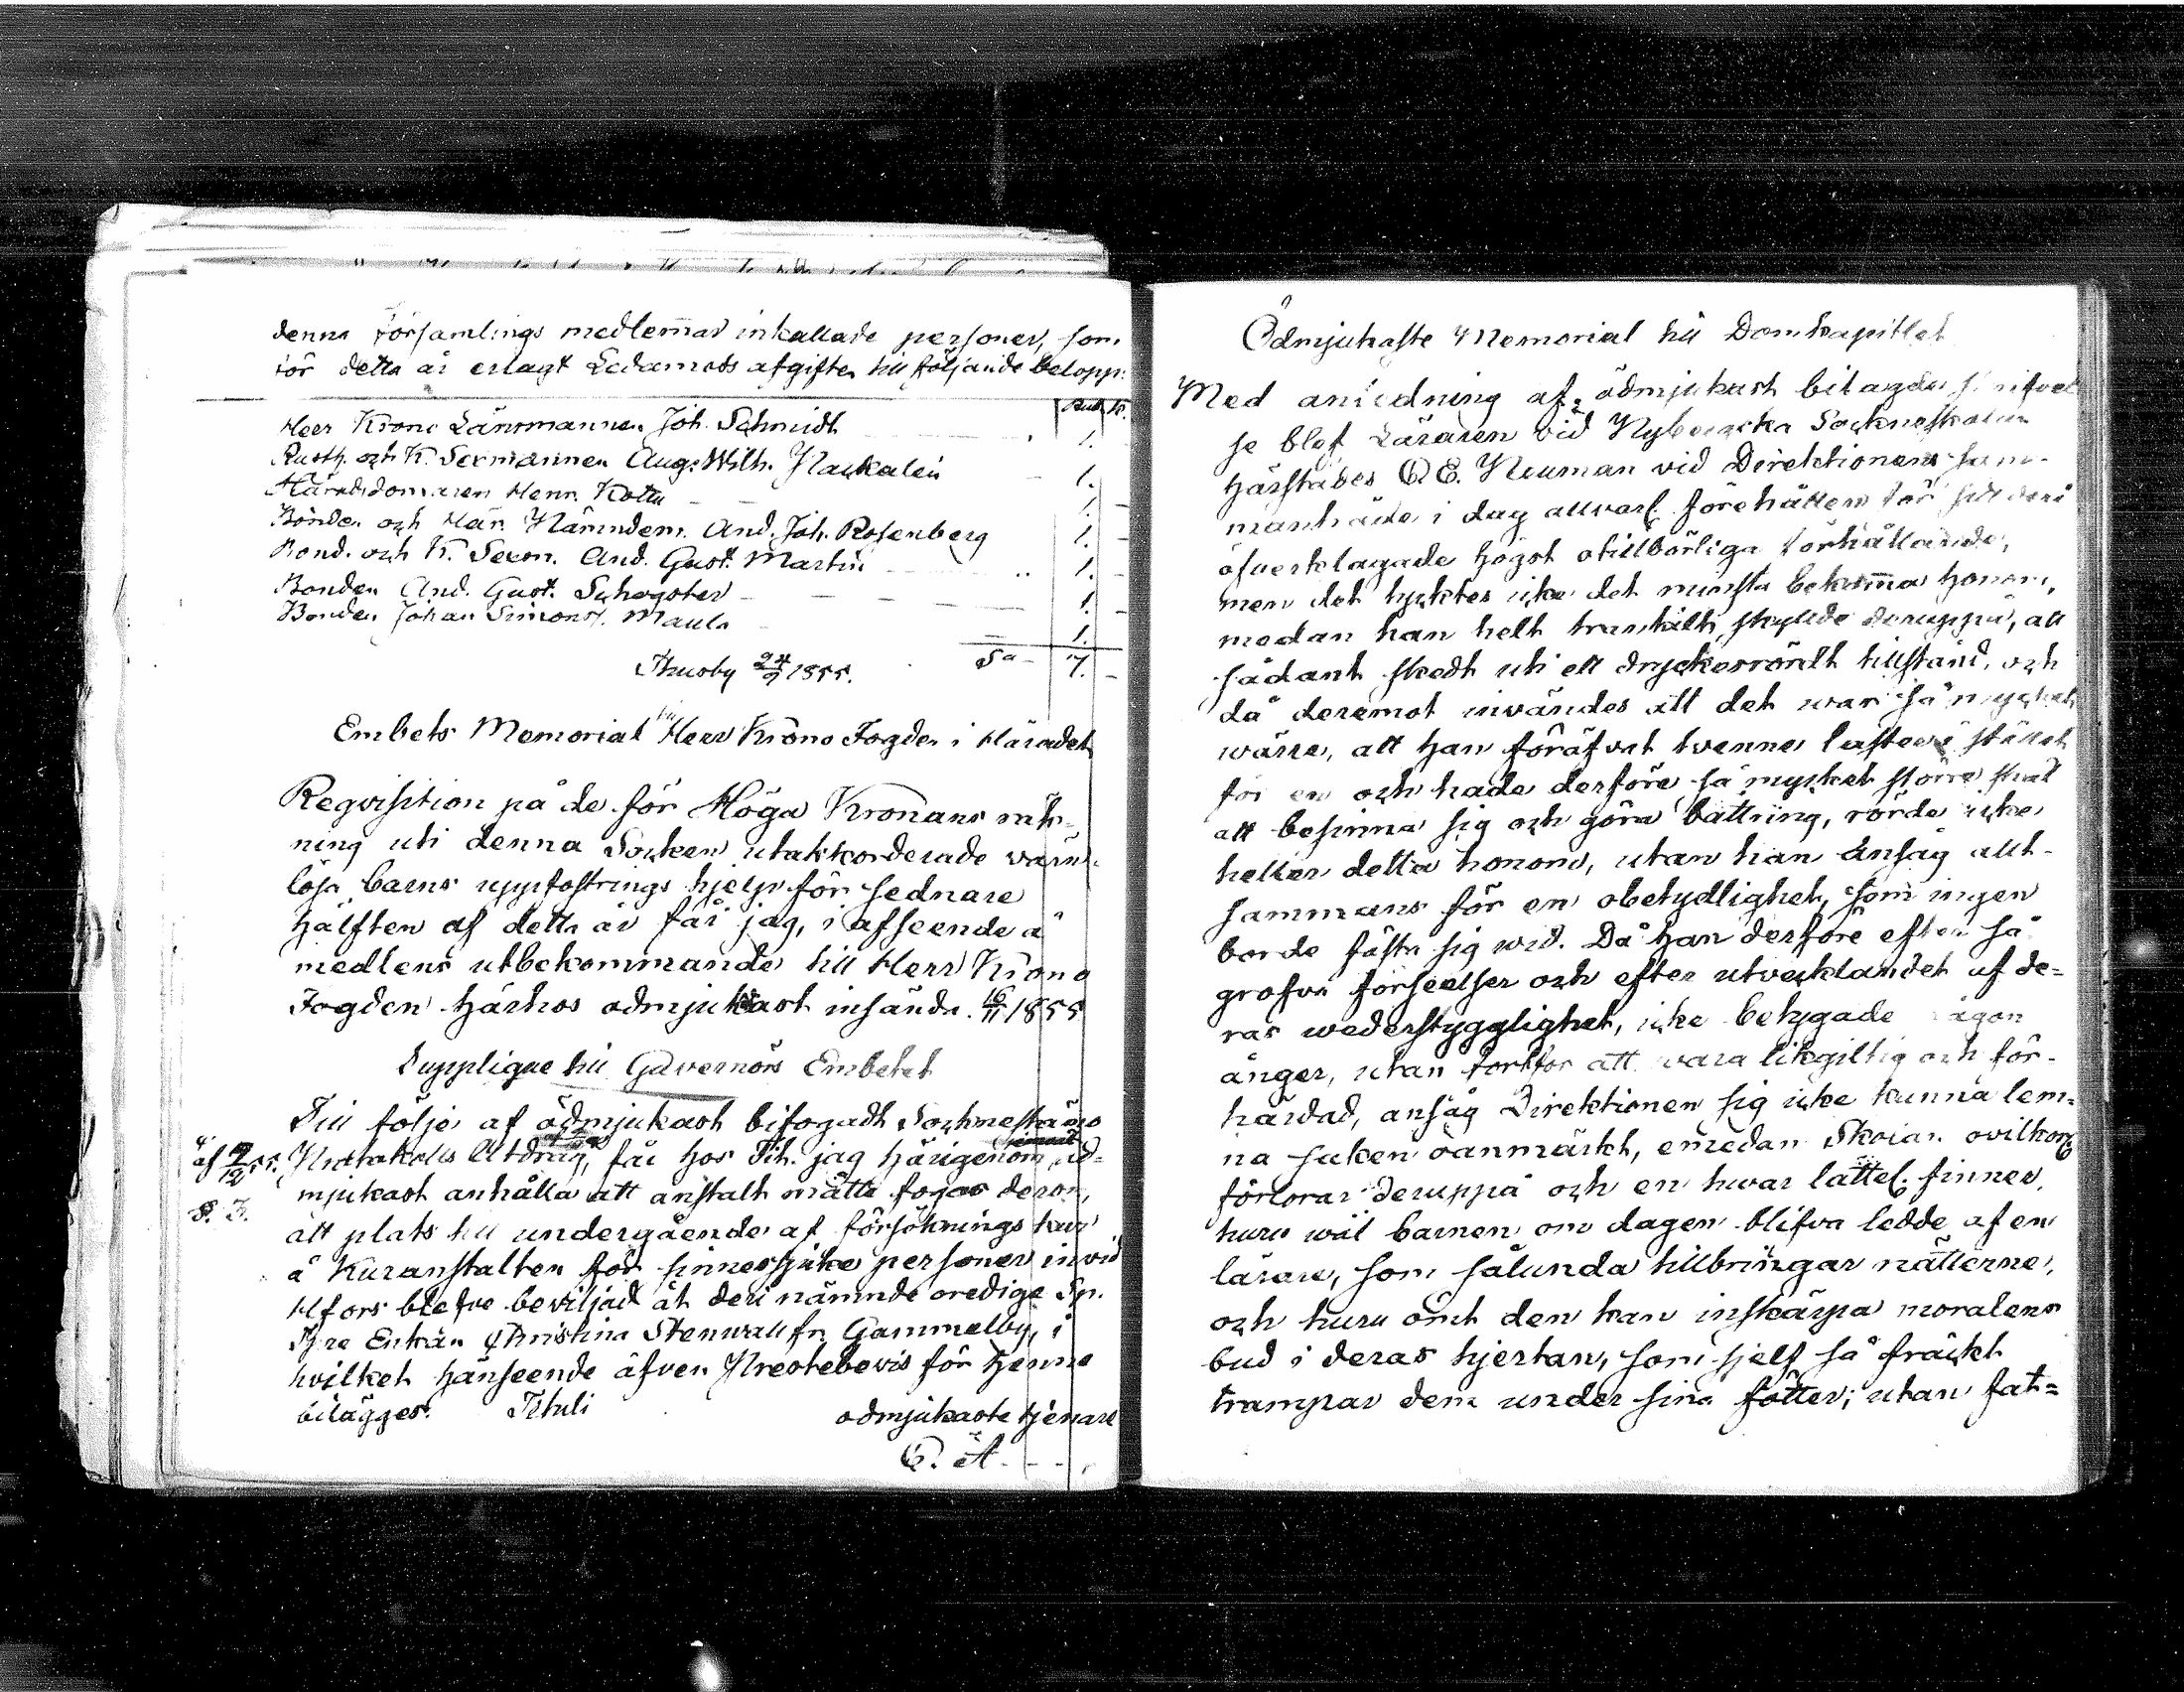 denna Församlings medlemmar inkallade personer, som
för detta år erlagt Ledamots afgifter till följande belopp:
Rub. K.
Herr Krono Länsmannen Joh. Schmidt 1.
Rusth. och K. Sexmannen Aug. Wilh. Nackalin 1. –
Häradsdomaren Henr. Kottu 1. –
Bonden och Här. Nämndem. And. Joh. Rosenberg 1. –
Bond. och K. Sexm. And. Gust. Martin 1. –
Bonden And. Gust. 1. –
Bonden Johan Simons. Maula 1.
Thusby 1855. Sa 7. –
Embets Memorial till Herr Krono Fogden i Häradet
Reqvisition på de för Höga Kronans räk-
ning uti denna Socken utakkorderade värn-
lösa barns uppfostrings hjelp för sednare
hälften af detta år får jag, i afseende å
medlens utbekommande till Herr Krono
Fogden härhos ödmjukast insända. 16/11 1855
Supplique till Guvernörs Embetet
Till följe af ödmjukast bifogadt Socknestämo
af 2/12 55. Protokolls Utdrag, får hos Tit. jag härigenom öd-
mjukast anhålla att anstalt måtte fogas derom,
§. 3.
att plats till undergående af försöknings kur
å Kuranstalten för sinnessjuke personer invid
Hfors blefve beviljad åt deri nämnde oredige Sp.
Enkan Christina Stenwall fr. Gammelby, i
hvilket hänseende äfven Prestebevis för henne
bilägges. Tituli ödmjukaste tjenare
C. A - - -
Ödmjukaste Memorial till Domkapitlet
Med anledning af ödmjukast bilagda skrifvel
se blef Läraren vid Nybyacka Sockneskolan
härstädes C. E. Neuman vid Direktionens sam-
manträde i dag allvarl. förehållen för sitt deri
öfverklagade högst otillbörliga förhållande,
men det tycktes icke det minsta bekomma honom,
medan han helt trankilt skyllde deruppå, att
sådant skedt uti ett dryckesrördt tillstånd, och
då deremot invändes att det war så mycket
wärre, att han föröfvat tvenne laster i stället
för en och hade derföre så mycket större skäl
att besinna sig och göra bättring, rörde icke
heller detta honom, utan han ansåg allt-
sammans för en obetydlighet, som ingen
borde fästa sig wid. Då han derföre efter så
grofva förseelser och efter utvecklandet af de-
ras wederstygglighet, icke betygade någon
ånger, utan fortfor att vara likgiltig och för-
härdad, ansåg Direktionen sig icke kunna lem-
na saken oanmärkt, emedan Skolan ovilkorl.
förlorar deruppå och en hwar lättel. finner,
huru wäl barnen om dagen blifva ledde af en
lärare, som sålunda tillbringar nätterne,
och huru ömt den kan inskärpa moralens
bud i deras hjertan, som sjelf så fräckt
trampar dem under sina fötter; utan fat-